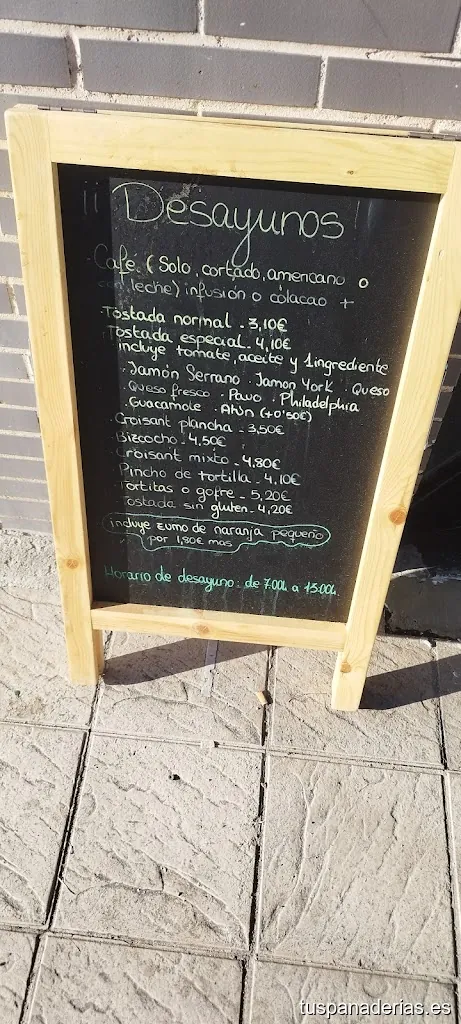 ¡¡ Desayunos !!
Café (Solo, cortado, americano o
con leche) infusión o colacao +
·Tostada normal - 3,10€
·Tostada especial - 4,10€
incluye tomate, aceite y 1 ingrediente
·Jamón Serrano . Jamon York . Queso
·Queso fresco . Pavo . Philadelphia
·Guacamole . Atún (+0'50€)
·Croisant plancha - 3,50€
·Bizcocho - 4,50€
·Croisant mixto - 4,80€
·Pincho de tortilla - 4,10€
·Tortitas o gofre - 5,20€
·Tostada sin gluten - 4,20€
incluye zumo de naranja pequeño
por 1,90€ mas
Horario de desayuno: de 7:00h a 13:00h.
tuspanaderias.es